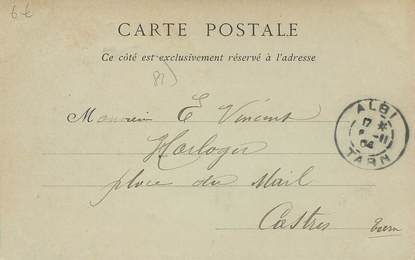 6-€
CARTE POSTALE
Ce côté est exclusivement réservé à l'adresse
81)
Monsieur E Vincent
Horloger
place du Mail
Castres Tarn
ALBI
17 *
-11
04
TARN